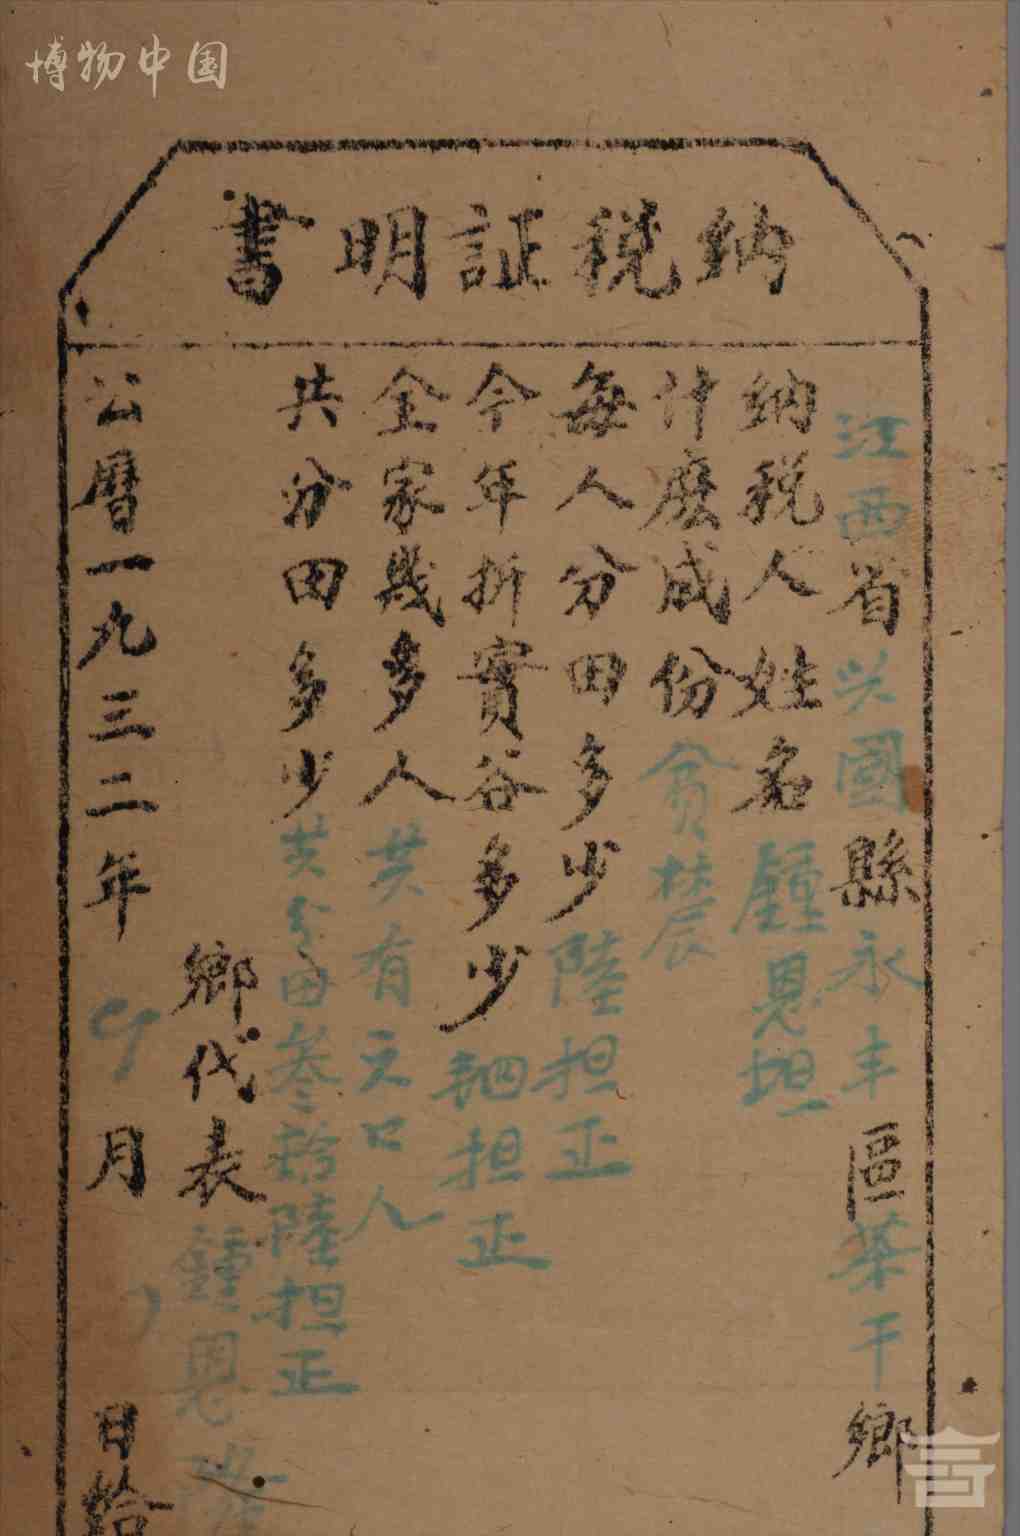 博物中国
納税証明書
江西省兴國縣永丰區茶干鄉
納税人姓名鍾恩坦
什麽成份貧農
每人分田多少陸担正
今年折實谷多少
担正
全家幾多人共有六口人
共分田多少共分田叁拾陸担正
鄉代表鍾恩
公曆一九三二年 月 日給